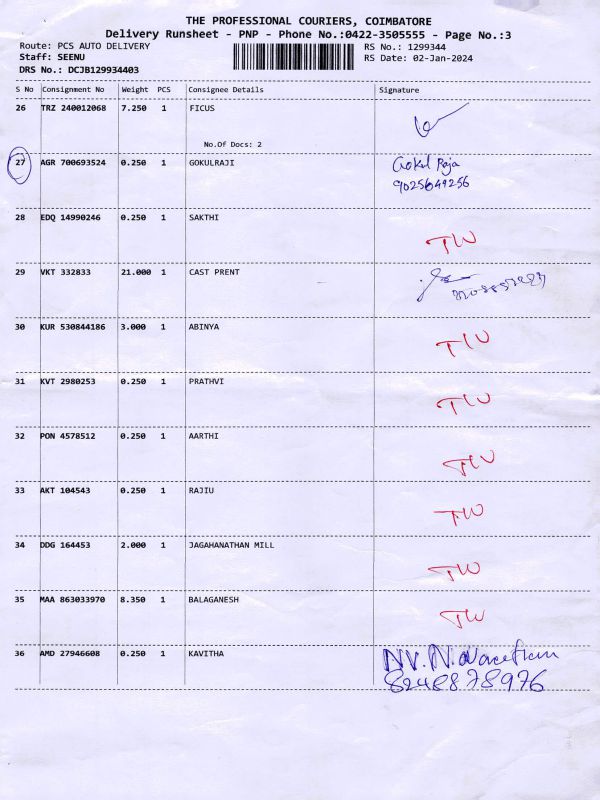 THE PROFESSIONAL COURIERS, COIMBATORE
Delivery Runsheet - PNP - Phone No.:0422-3505555 - Page No.:3
Route: PCS AUTO DELIVERY RS No.: 1299344
Staff: SEENU RS Date: 02-Jan-2024
DRS No.: DCJB129934403
S No Consignment No Weight PCS Consignee Details Signature
26 TRZ 240012068 7.250 1 FICUS
No.Of Docs: 2
27 AGR 700693524 0.250 1 GOKULRAJI Gokul Raja
9025649256
28 EDQ 14990246 0.250 1 SAKTHI TW
29 VKT 332833 21.000 1 CAST PRENT
30 KUR 530844186 3.000 1 ABINYA TW
31 KVT 2980253 0.250 1 PRATHVI TW
32 PON 4578512 0.250 1 AARTHI TW
33 AKT 104543 0.250 1 RAJIU TW
34 DDG 164453 2.000 1 JAGAHANATHAN MILL TW
35 MAA 863033970 8.350 1 BALAGANESH TW
36 AMD 27946608 0.250 1 KAVITHA NV.N.
8248878976